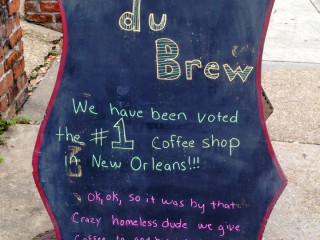 du
Brew
We have been voted
the #1 Coffee shop
in New Orleans!!!
Ok, ok, so it was by that
Crazy homeless dude we give
Coffee to